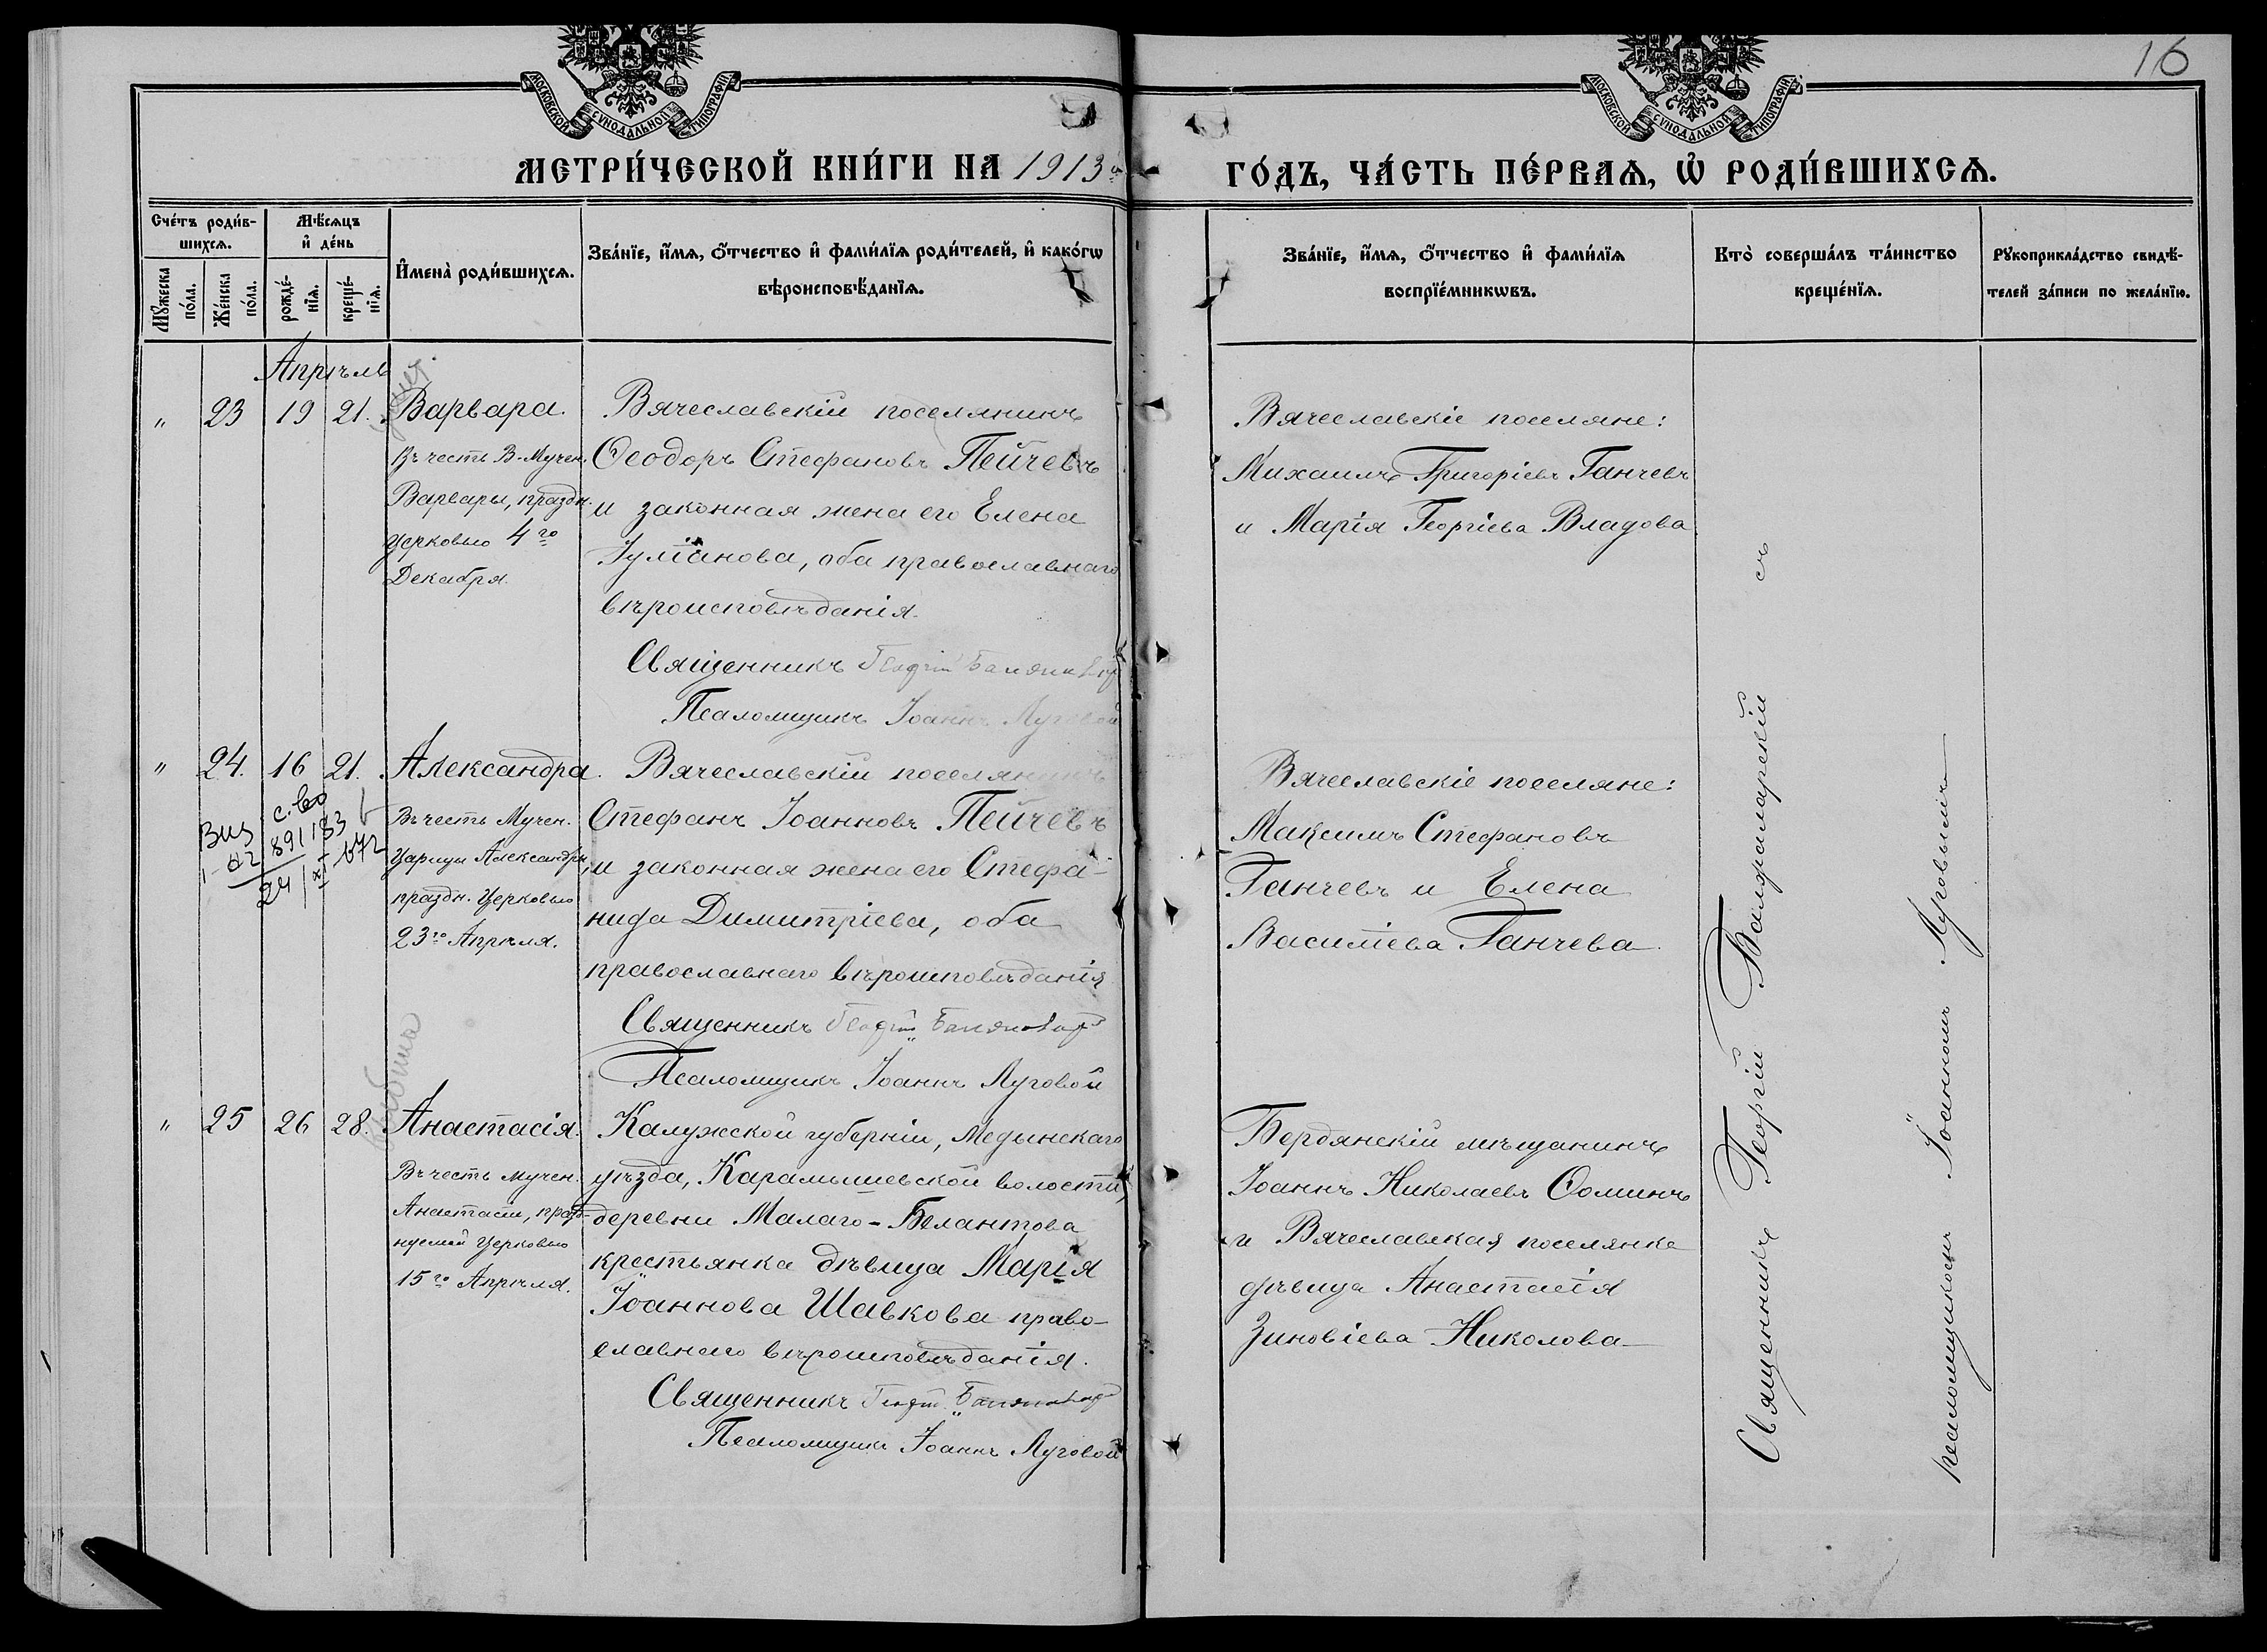 16
МОСКОВСКОЙ СѴНОДАЛЬНОЙ ТИПОГРАФІИ
МОСКОВСКОЙ СѴНОДАЛЬНОЙ ТИПОГРАФІИ
МЕТРИ́ЧЕСКОЙ КНИ́ГИ НА 1913й
ГО́ДЪ, ЧА́СТЬ ПЕ́РВАѦ, Ѡ҆ РОДИ́ВШИХСѦ.
Сче́тъ роди́в-
шихсѧ.
Мꙋ́жеска по́ла.
Же́нска по́ла.
Мѣ́сѧцъ
и҆ де́нь
рожде́-
нїѧ.
креще́-
нїѧ.
И҆мена̀ роди́вшихсѧ.
Зва́нїе, и҆́мѧ, ѻ҆́тчество и҆ фами́лїѧ роди́телей, и҆ како́гѡ
вѣроисповѣ́данїѧ.
Зва́нїе, и҆́мѧ, ѻ҆́тчество и҆ фами́лїѧ
воспрїе́мникѡвъ.
Кто̀ соверша́лъ та́инство
креще́нїѧ.
Рꙋкоприкла́дство свидѣ́-
телей за́писи по жела́нїю.
Апрѣль
" 23 19 21. Варвара.
Въ честь В-Мучен.
Варвары, праздн.
Церковью 4го
Декабря.
Вячеславскій поселянинъ
Ѳеодоръ Стефановъ Пейчевъ
и законная жена его Елена
Іуліанова, оба православнаго
вѣроисповѣданія.
Священникъ Георгій
Псаломщикъ Іоаннъ Луговой
Вячеславскіе поселяне:
Михаилъ Григоріевъ Ганчевъ
и Марія Георгіева Владова
" 24. 16 21. Александра.
Въ честь Мучен.
Царицы Александры,
праздн. Церковью
23го Апрѣля.
с. во
24
Вячеславскій поселянинъ
Стефанъ Іоанновъ Пейчевъ
и законная жена его Стефа-
нида Димитріева, оба
православнаго вѣроисповѣданія
Священникъ Георгій
Псаломщикъ Іоаннъ Луговой
Вячеславскіе поселяне:
Максимъ Стефановъ
Ганчевъ и Елена
Василіева Ганчева.
" 25 26 28. Анастасія.
Въ честь мучен.
Анастасіи, празд-
нуемой Церковью
15го Апрѣля.
Калужской губерніи, Медынскаго
уѣзда, Карамышевской волости,
деревни Малаго-Белантова
крестьянка дѣвица Марія
Іоаннова Шавкова право-
славнаго вѣроисповѣданія.
Священникъ Георгій
Псаломщикъ Іоаннъ Луговой
Бердянскій мѣщанинъ
Іоаннъ Николаевъ Ѳоминъ
и Вячеславская поселянка
дѣвица Анастасія
Зиновіева Николова
Священникъ Георгій съ
псаломщикомъ Іоанномъ Луговымъ